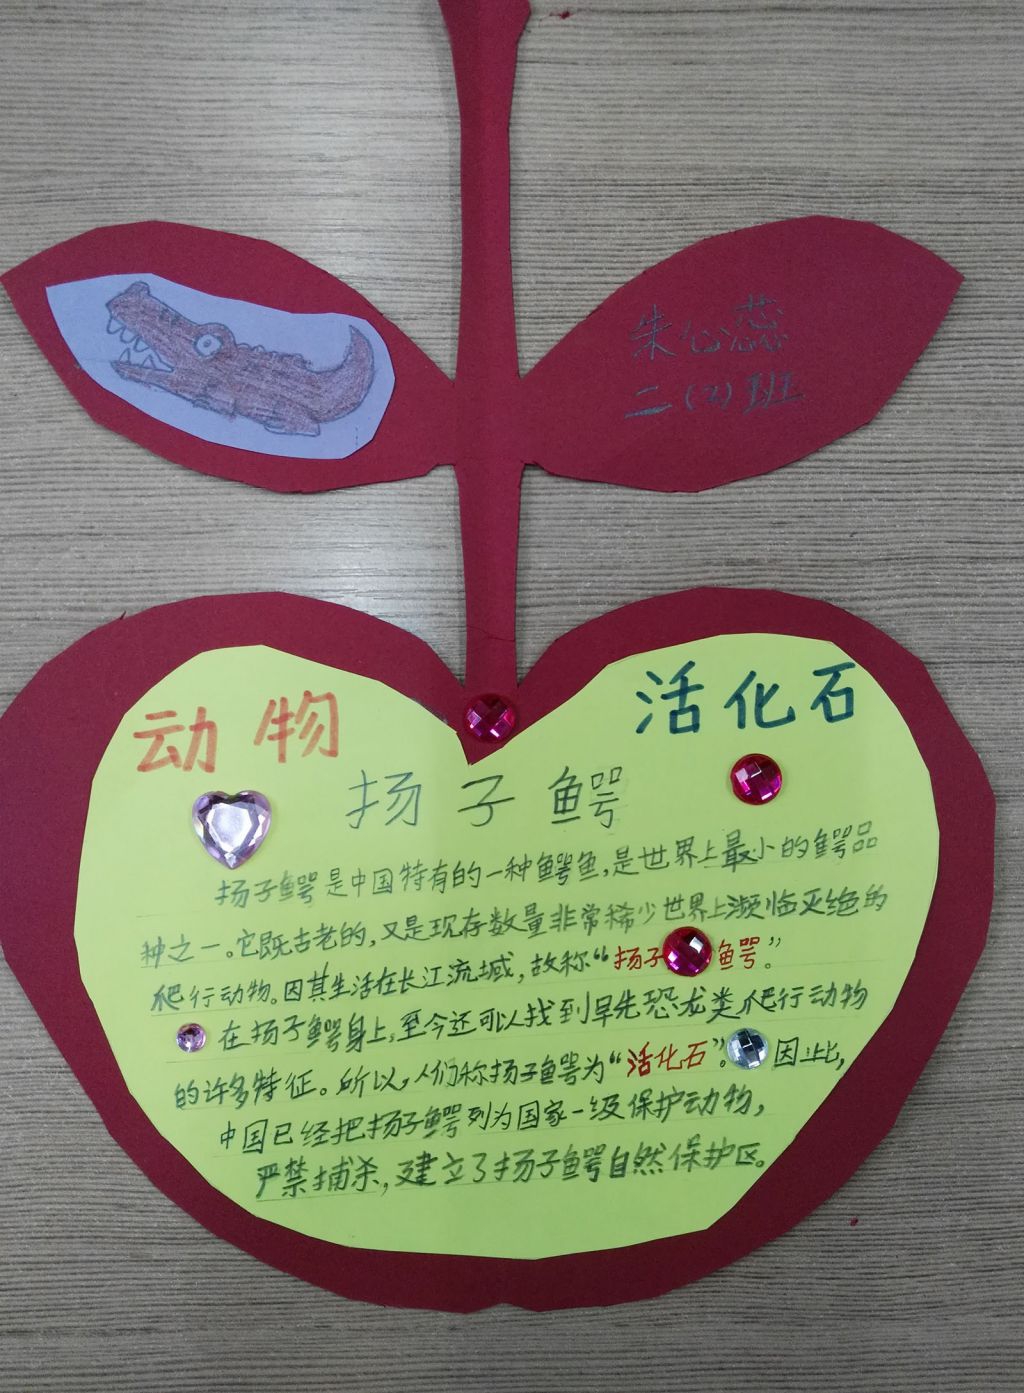 朱心蕊
二(2)班
动物
活化石
扬子鳄
扬子鳄是中国特有的一种鳄鱼,是世界上最小的鳄品
种之一。它既古老的,又是现存数量非常稀少世界上濒临灭绝的
爬行动物。因其生活在长江流域,故称“扬子鳄”。
在扬子鳄身上,至今还可以找到早先恐龙类爬行动物
的许多特征。所以,人们称扬子鳄为“活化石”。因此,
中国已经把扬子鳄列为国家一级保护动物,
严禁捕杀,建立了扬子鳄自然保护区。